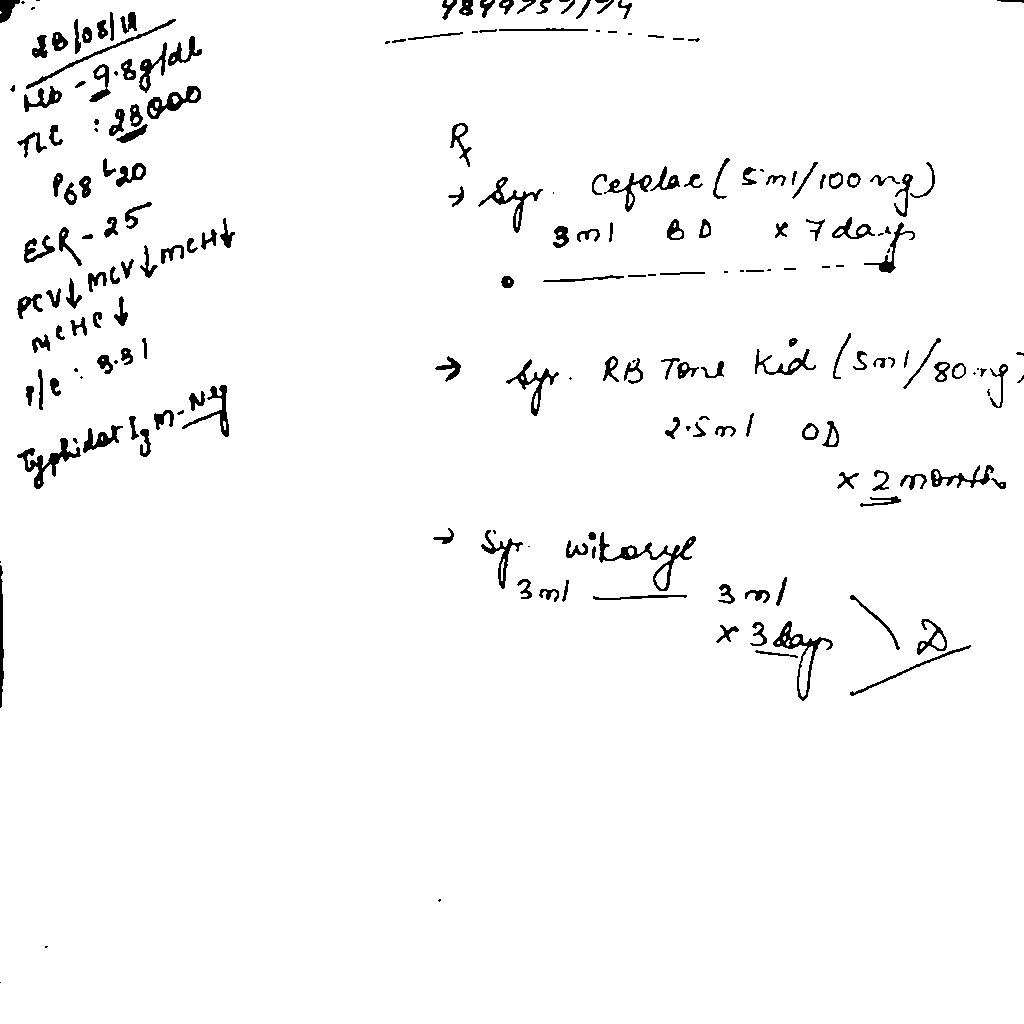 28/08/19
Hb - 9.8g/dl
TLC : 28000
P68 L20
ESR - 25
PCV↓ MCV↓ MCH↓
MCHC↓
: 3.31
Typhidot IgM - Neg
Rx
→ Syr. Cefelac (5ml/100mg)
3ml BD x 7 days
→ Syr. RB Tone Kid (5ml/80mg)
2.5ml OD
x 2 months
→ Syr. Wikoryl
3ml — 3ml
x 3 days